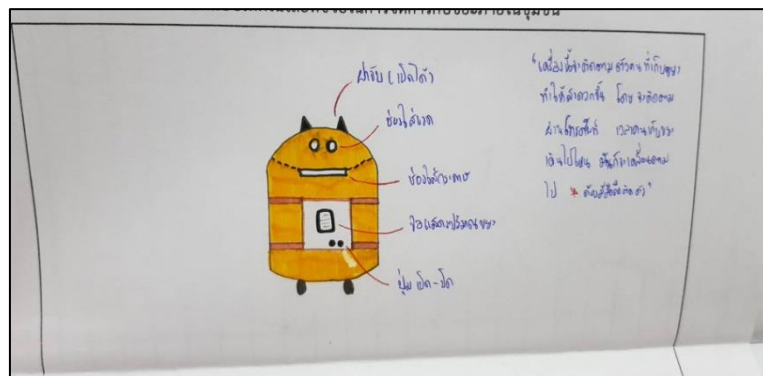 ฝาจับ (เปิดได้)
ช่องใส่ขวด
ช่องใส่กระดาษ
จอแสดงปริมาณขยะ
ปุ่ม เปิด-ปิด
"เครื่องนี้จะติดตามตัวคนที่เก็บขยะ
ทำให้สะดวกขึ้น โดยจะติดตาม
ผ่านโทรศัพท์ เวลาคนเก็บขยะ
เดินไปไหน มันก็จะเคลื่อนตาม
ไป * ต้องมีมือถือติดตัว"